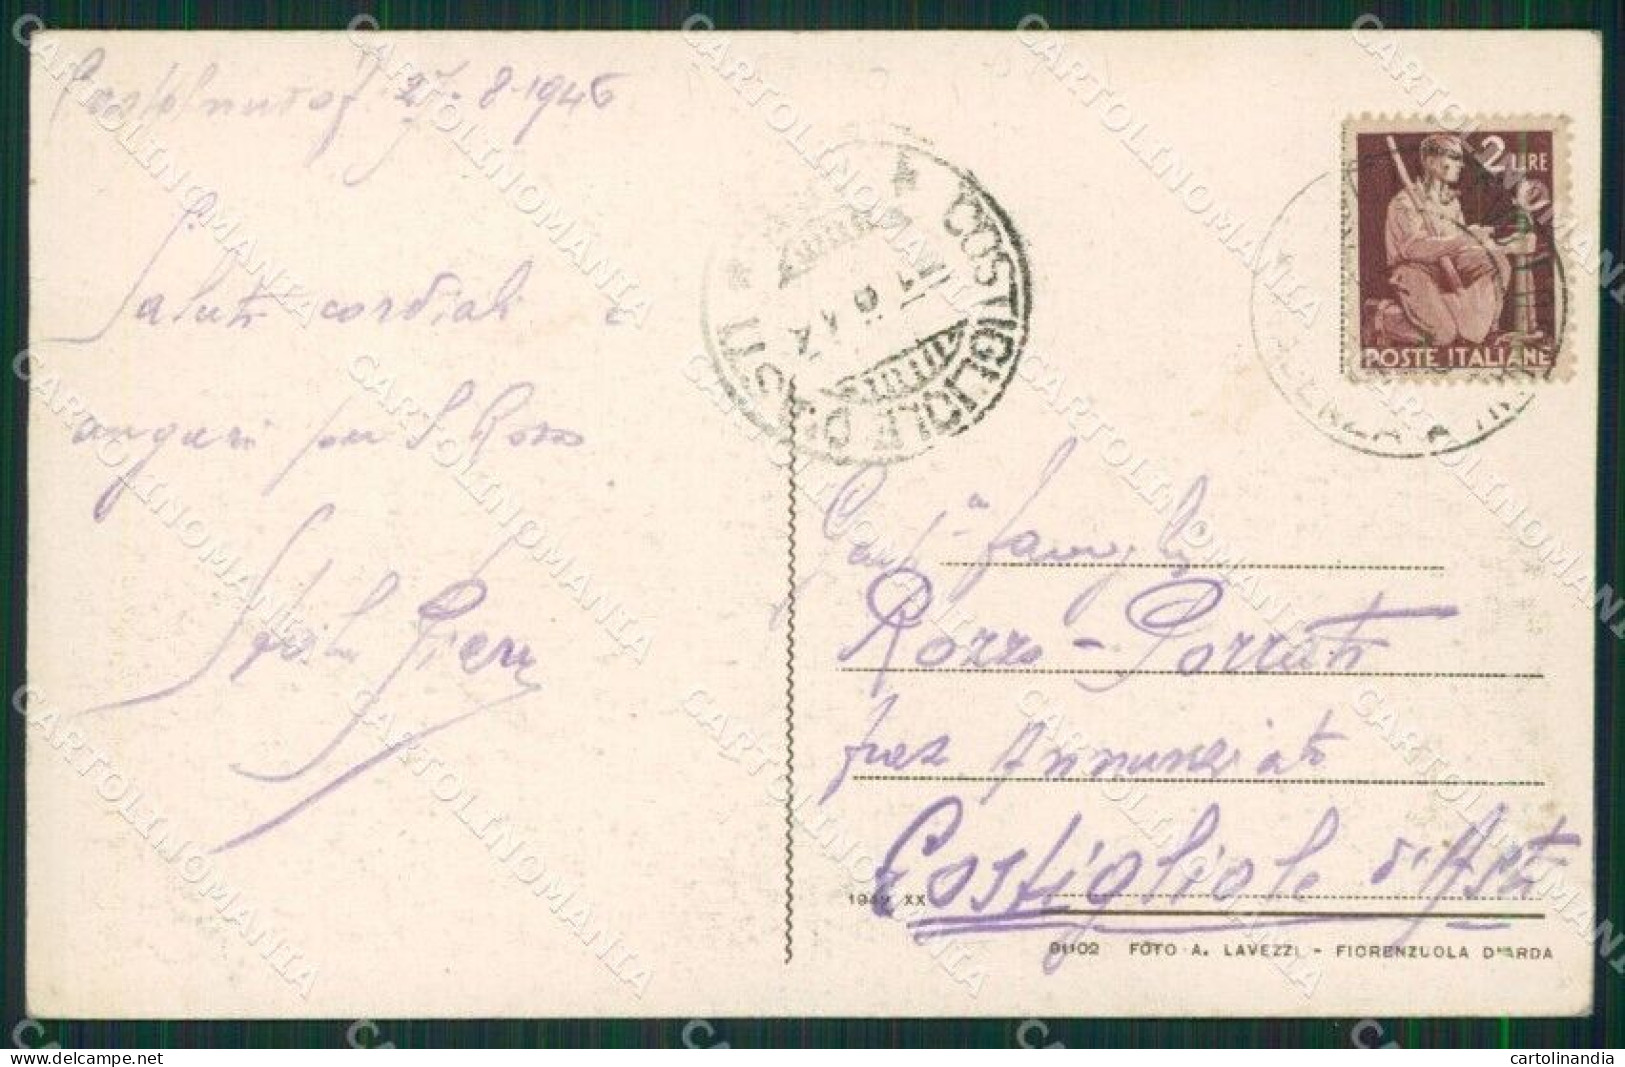 27-8-1946
Saluti cordiali e
auguri per S Rosa
2 LIRE
POSTE ITALIANE
COSTIGLIOLE D'ASTI
famiglia
Rozzo - Porrati
fraz Annunziata
Costigliole d'Asti
1942 XX
91102 FOTO A. LAVEZZI - FIORENZUOLA D'ARDA
CARTOLINOMANIA
cartolinandia